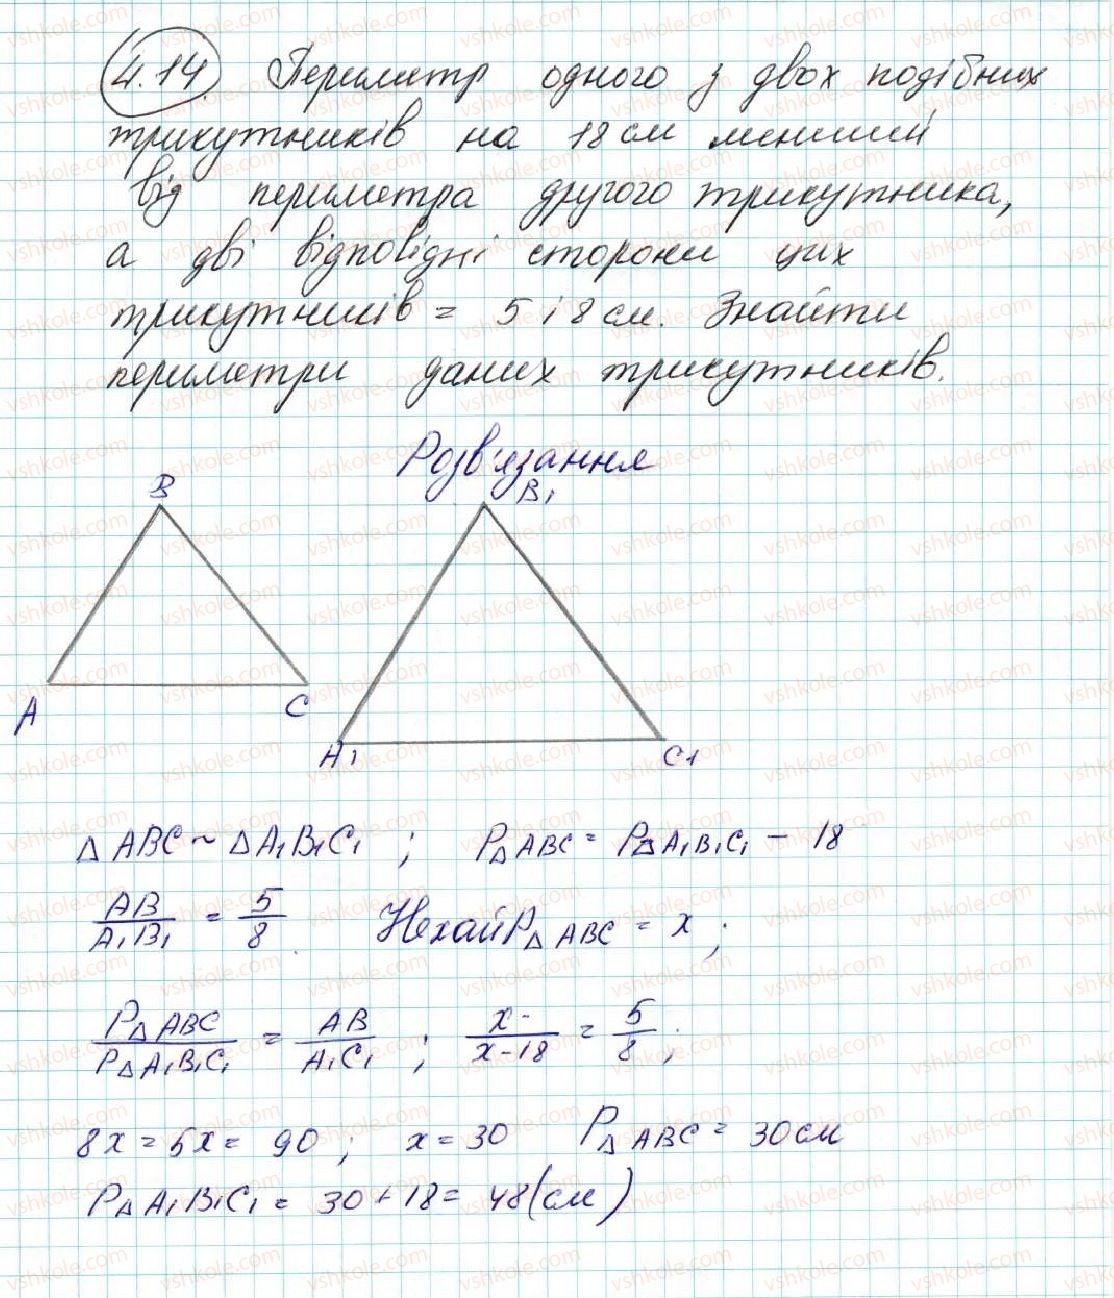 4.14. Периметр одного з двох подібних
трикутників на 18 см менший
від периметра другого трикутника,
а дві відповідні сторони цих
трикутників = 5 і 8 см. Знайти
периметри даних трикутників.
Розв'язання
B B₁
A C
A₁ C₁
△ ABC ~ △ A₁B₁C₁ ; P△ ABC = P△ A₁B₁C₁ - 18
AB/A₁B₁ = 5/8 Нехай P△ ABC = x ;
P△ ABC/P△ A₁B₁C₁ = AB/A₁C₁ ; x-/x-18 = 5/8 ;
8x = 5x = 90 ; x = 30 P△ ABC = 30 см
P△ A₁B₁C₁ = 30 + 18 = 48 (см)